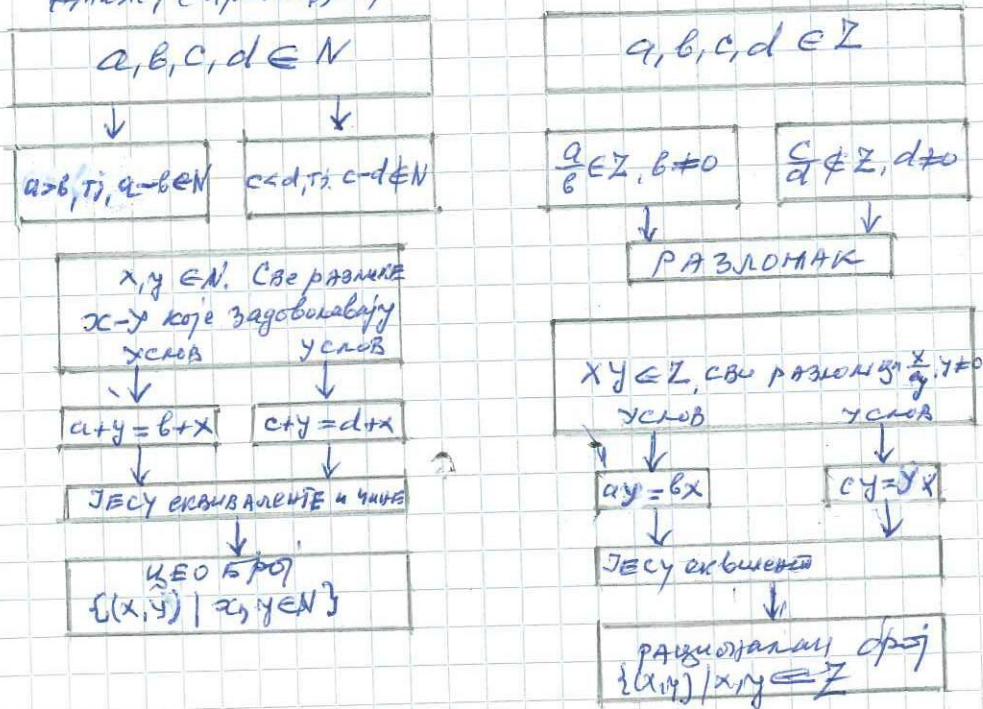 a, в, c, d ∈ N
a>в, тј. a-в∈N
c<d, тј. c-d∉N
x, y ∈ N. Све разлике
x-y које задовољавају
услов услов
a+y=в+x
c+y=d+x
ЈЕСУ еквиваленте и чине
ЦЕО БРОЈ
{(x,y) | x, y∈N}
a, в, c, d ∈ Z
a/в ∈ Z, в≠0
c/d ∉ Z, d≠0
РАЗЛОМАК
x y ∈ Z, сви разломци x/y, y≠0
услов услов
ay=вx
cy=yx
ЈЕСУ
рационалан број
{(x,y) | x, y ∈ Z